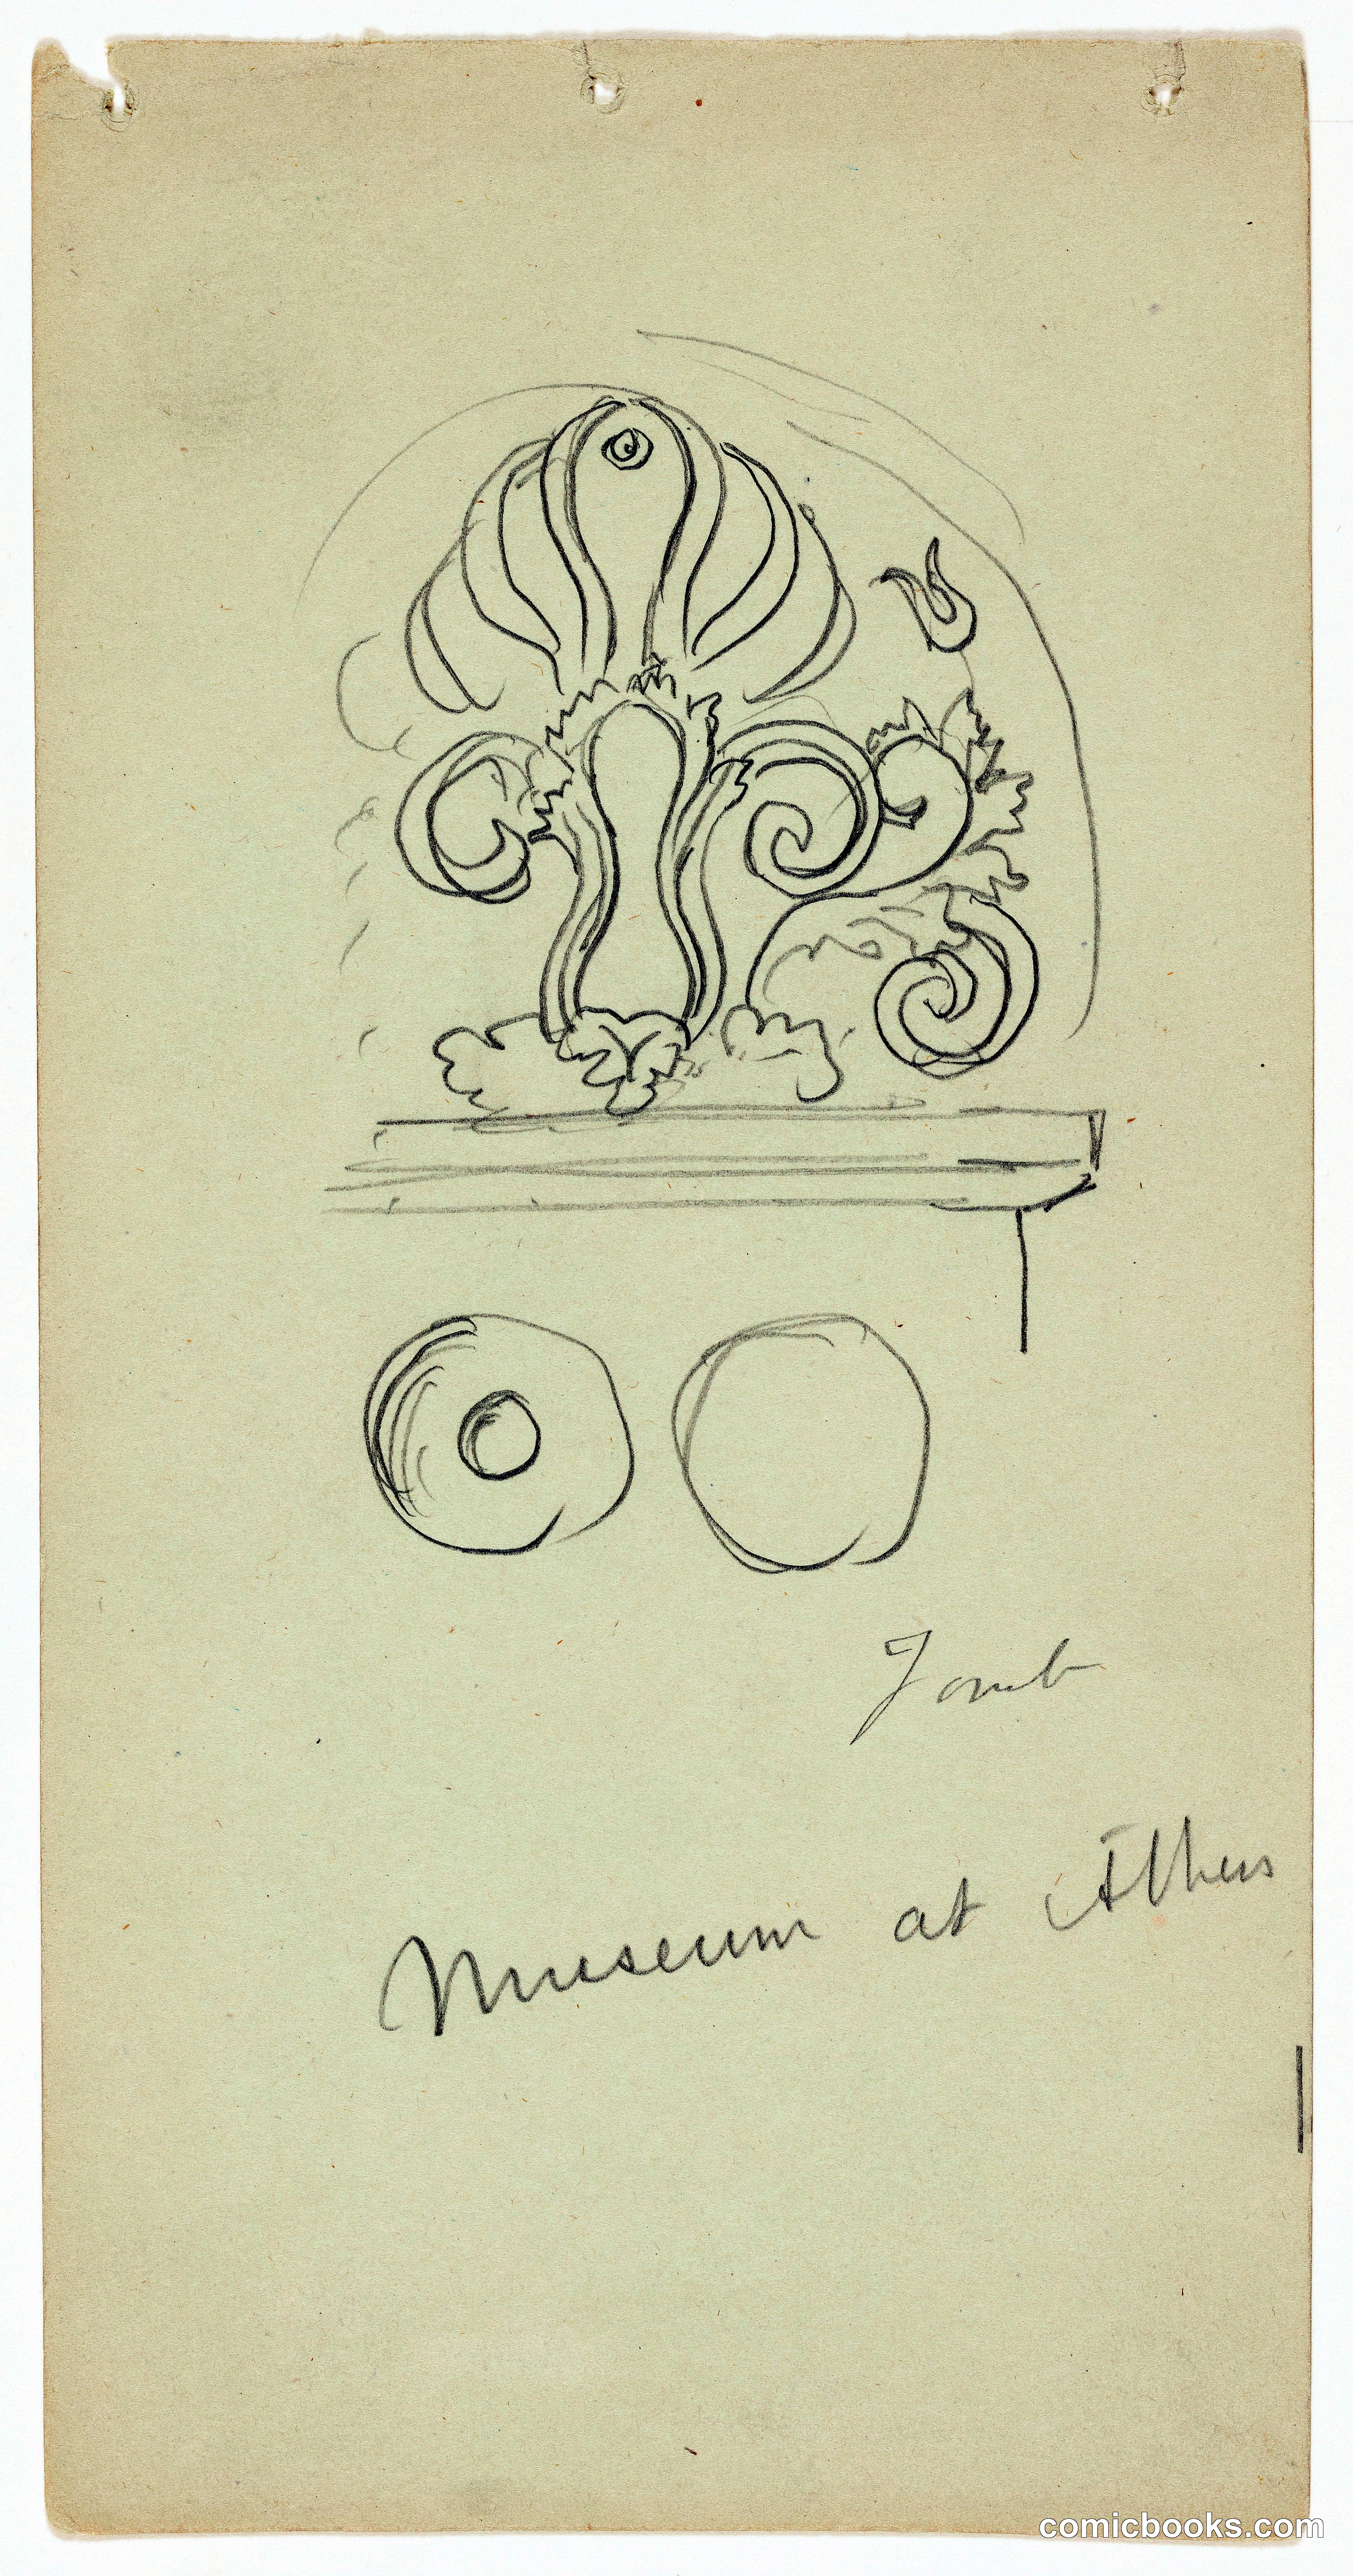 Tomb
Museum at Athens
comicbooks.com